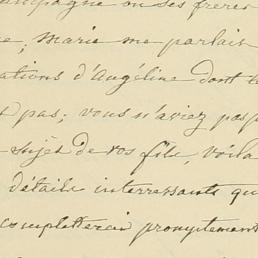 campagne ou ses frères
e, Marie me parlait
ations d'Angéline dont le
pas; vous n'aviez pas
sujet de vos fils, voilà
détails interressants qu
completterai promptement